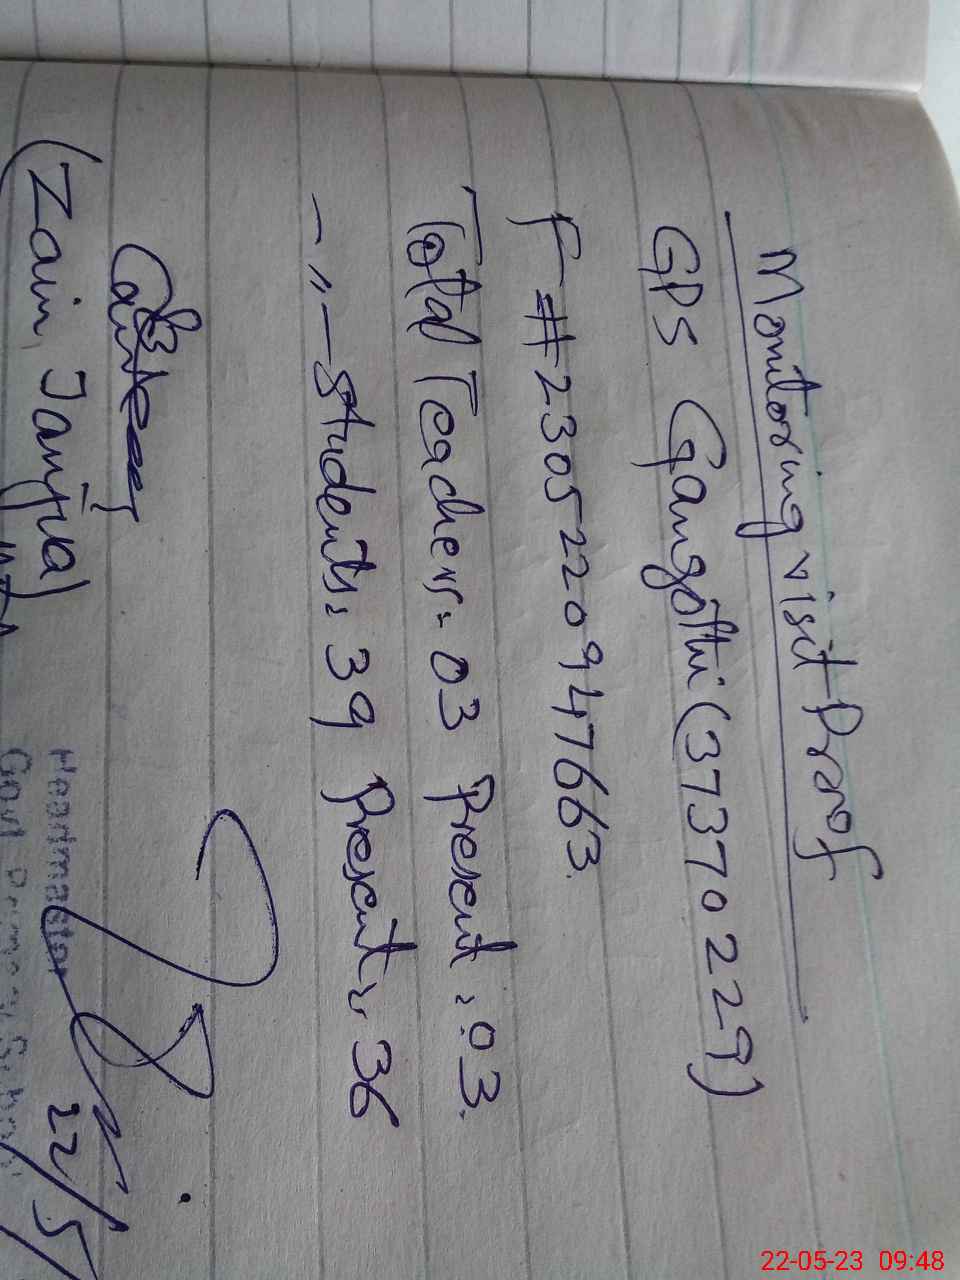 Monitoring visit Proof
GPS Gangothi (37370229)
F-#2305220947663.
Total Teachers: 03 Present: 03.
-〃- Students: 39 Present: 36
(Zain Janjua)
Headmaster
Govt Primary School
22/5/
22-05-23 09:48